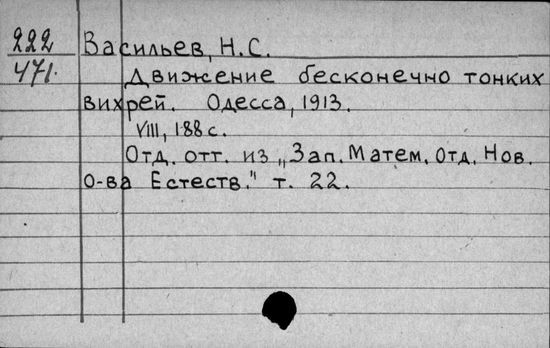 222
471.
Васильев, Н.С.
Движение бесконечно тонких
вихрей. Одесса, 1913.
VIII, 188 с.
Отд. отт. из „Зап. Матем. Отд. Нов.
О-ва Естеств." т. 22.